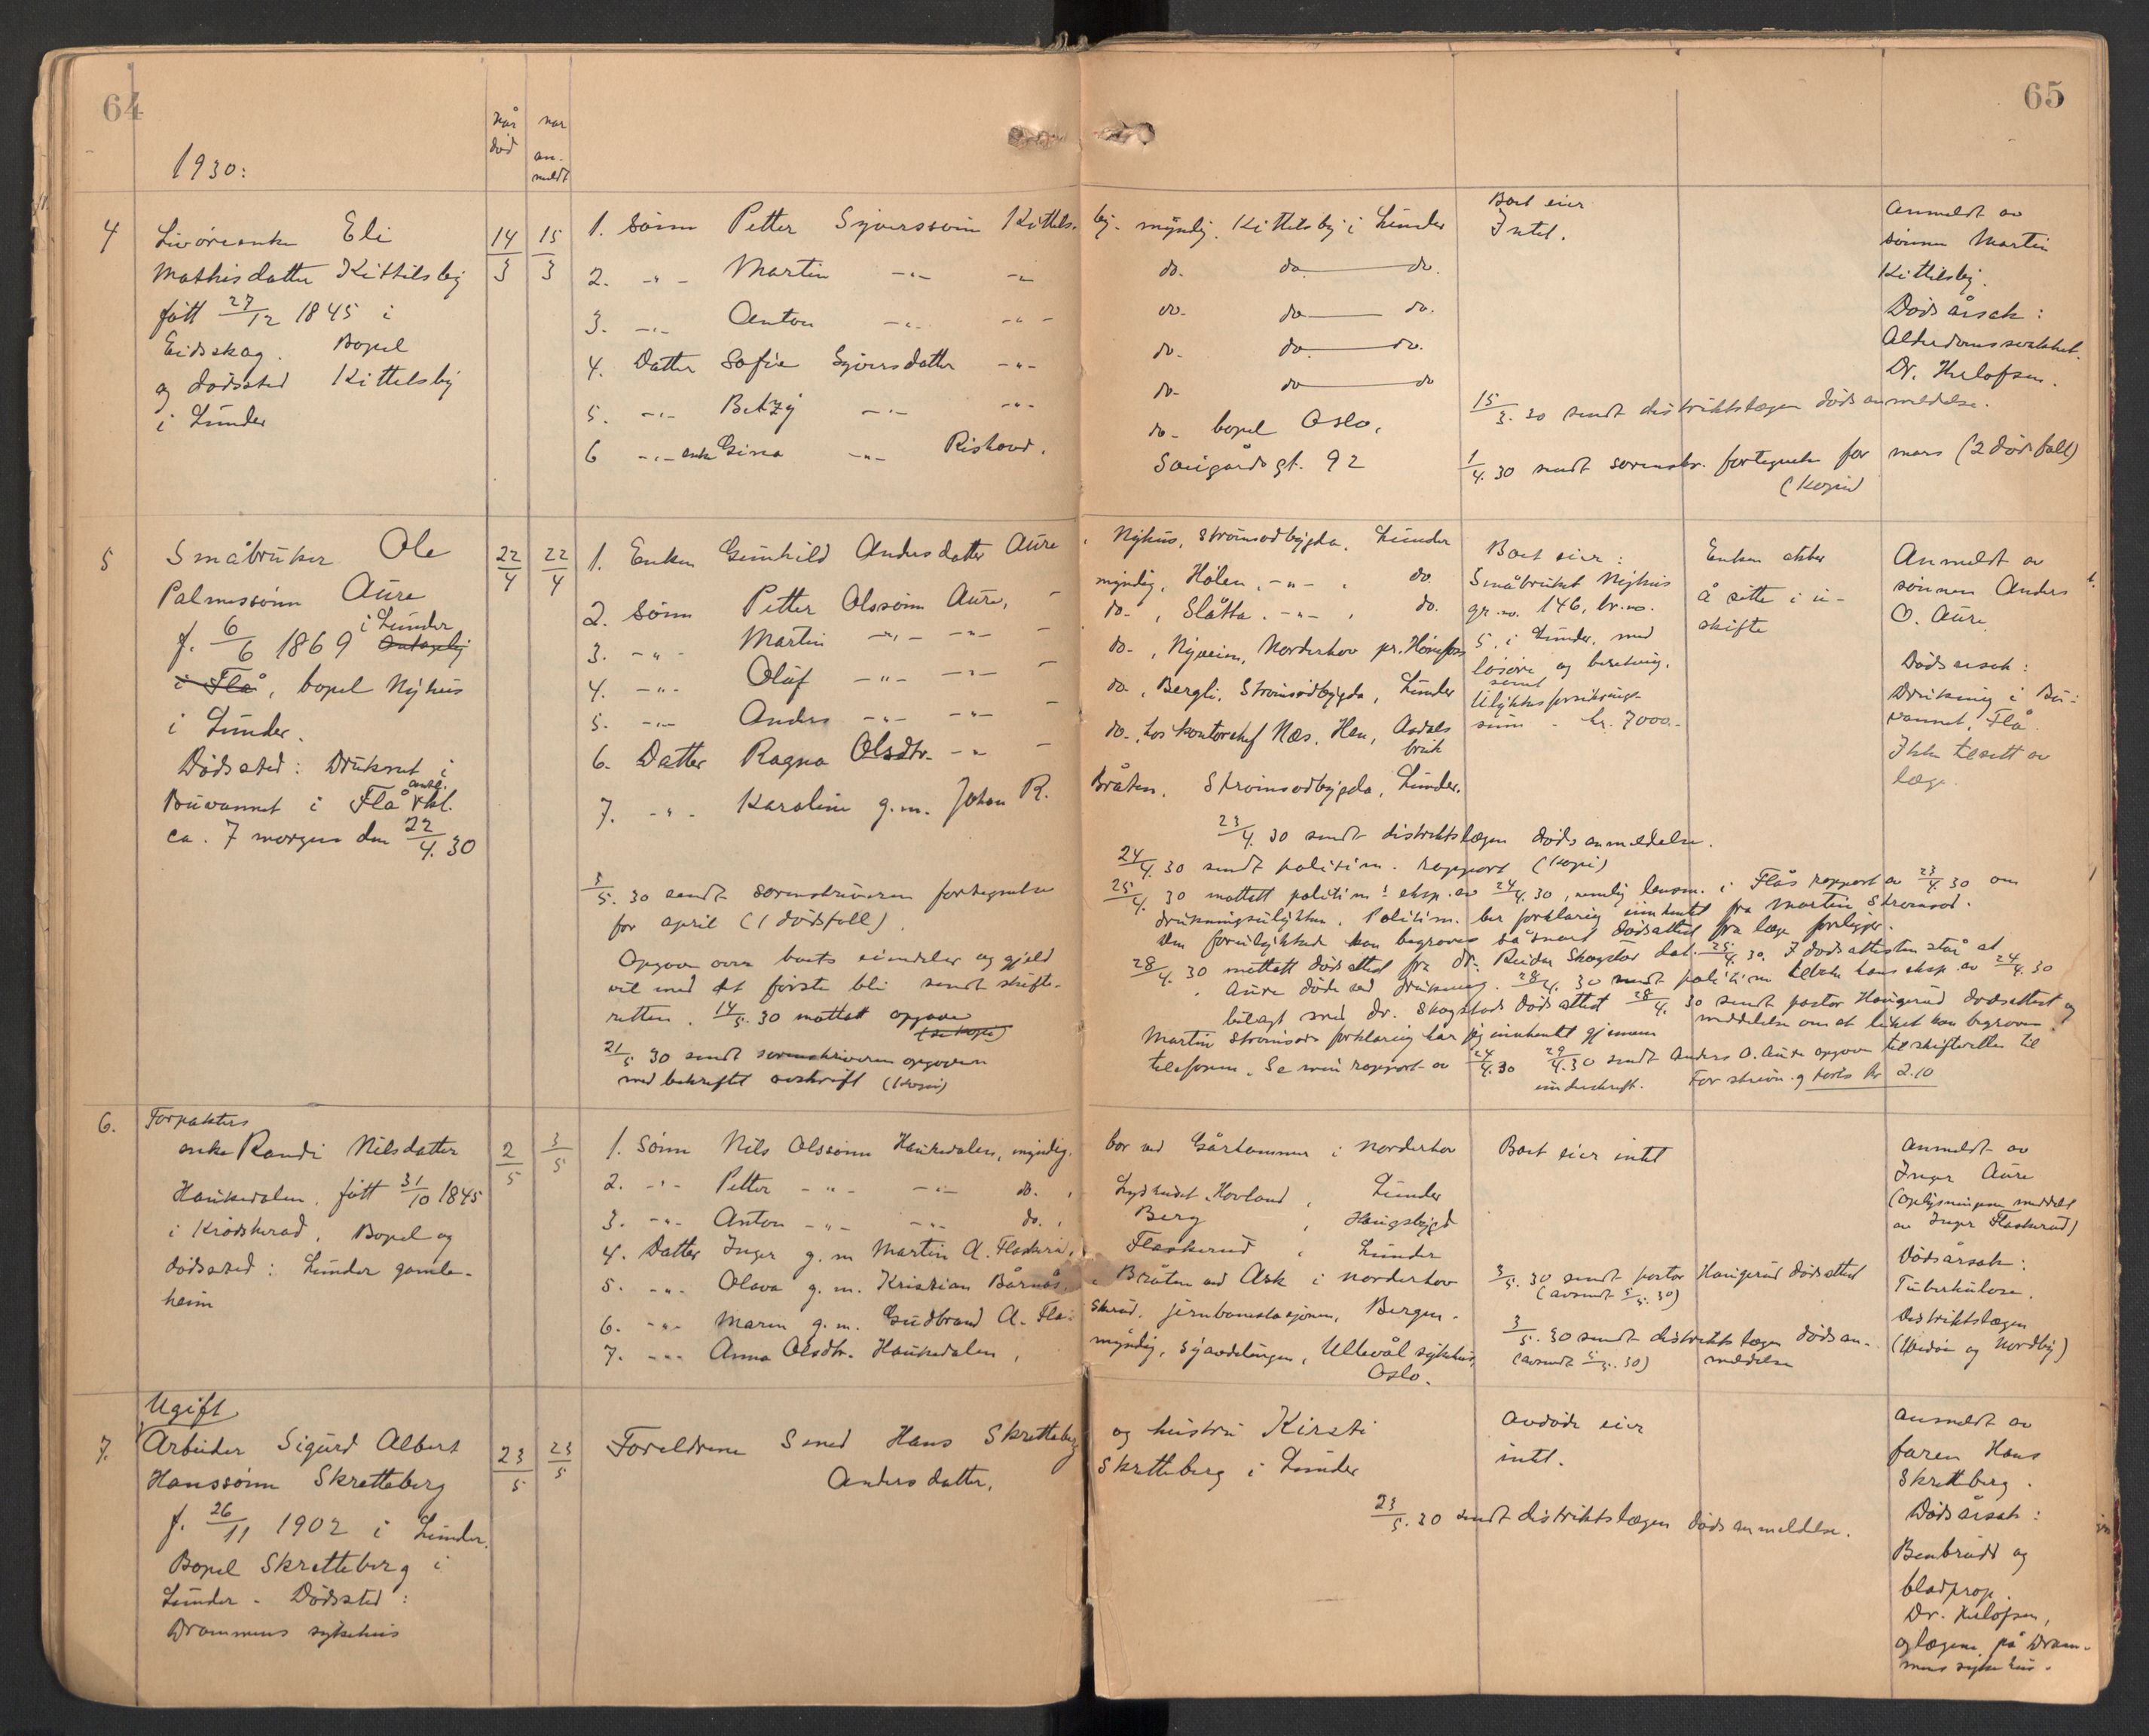 64
65
når død
når an-meldt
1930:
4
Livøreenke Eli
Mathisdatter Kittilsby
født 27/12 1845 i
Eidskog. Bopel
og dødssted Kittelsby
i Lunder
14/3
15/3
1. Sønn Petter Syverssønn Kittels-
by. myndig. Kittelsby i Lunder
2. -"- Martin -"- -"-
do. do. do.
3. -"- Anton -"- -"-
do. do. do.
4. Datter Sofie Syversdatter -"-
do. do. do.
5. -"- Betzy -"- -"-
do. do. do
6 -"- enke Gina -"- Rishovd.
do. bopel Oslo,
gt. 92
Boet eier
Intet.
Anmeldt av
sønnen Martin
Kittilsby.
Dødsårsak:
Alderdomssvakhet.
Dr. Herlofsen.
15/3.30 sendt distriktslægen dødsanmeldelse.
1/4.30 sendt sorenskr. fortegnelse for mars (2 dødsfall)
(Kopi)
5
Småbruker Ole
Palmessønn Aure
f. 6/6 1869 i Lunder
i Flå, bopel Nyhus
i Lunder.
Dødssted: Druknet i
Buvannet i Flå antl. kl.
ca. 7 morgen den 22/4.30
22/4
22/4
1. Enken Gunhild Andersdatter Aure
, Nyhus, Strømsodbygda, Lunder
2. Sønn Petter Olssønn Aure, -
myndig, Hølen, -"- , do.
3. -"- Martin -"- -"- -
do. , Slåtta. -"- , do.
4. -"- Oluf -"- -"- -
do. , Nyheim, Norderhov pr. Hønefoss
5. -"- Anders -"- -"-
do. , Bergli, Strømsodbygda, Lunder
6. Datter Ragna Olsdtr. -"- -
do., hos kontorchef Næs, Hen, Aadals bruk
7. -"- Karoline g.m. Johan R.
Bråten, Strømsodbygda, Lunder.
Boet eier:
Småbruket Nyhus
gr.no. 146, br.no.
5, i Lunder, med
løsøre og besetning,
samt
Ulykkesforsikrings-
sum - kr. 7000.-
Enken akter
å sitte i u-
skifte
Anmeldt av
sønnen Anders
O. Aure.
Dødsårsak:
Drukning i Bu-
vannet, Flå.
Ikke tilsett av
læge.
23/4.30 sendt distriktslægen dødsanmeldelse.
24/4.30 sendt politim. rapport (kopi)
25/4.30 mottatt politim.s eksp. av 24/4.30, nemlig lensm. i Flås rapport av 23/4.30 om
drukningsulykken. Politim. ber forklaring innhentet fra Martin Strømsod.
Den forulykkede kan begraves så snart dødsattest fra læge foreligger.
28/4.30 mottatt dødsattest fra dr. Reidar Skogstad dat. 25/4.30. I dødsattesten står at
Aure døde ved drukning. 28/4.30 sendt politim tilbake hans eksp. av 24/4.30
bilagt med dr. Skogstads dødsattest 28/4.30 sendt pastor Haugerud dødsattest og
meddelelse om at liket kan begraves.
Martin Strømsods forklaring har jeg innhentet gjennem
telefonen. Se min rapport av 24/4.30 29/4.30 sendt Anders O. Aure opgave til skifteretten til
underskrift. For skriv. og porto kr 2.10
3/5.30 sendt sorenskriveren fortegnelse
for april (1 dødsfall).
Opgave over boets eiendeler og gjeld
vil med det første bli sendt skifte-
retten. 14/5.30 mottatt opgave
(se kopi)
21/5.30 sendt sorenskriveren opgaven
med bekreftet avskrift (Kopi)
6.
Forpakters
enke Randi Nilsdatter
Haukedalen, født 31/10 1845
i Krødsherad, Bopel og
dødssted: Lunder gamle-
heim
2/5
3/5
1. Sønn Nils Olssønn Haukedalen, myndig.
bor ved Gårhammer i Norderhov
2. -"- Petter -"- -"- do. ,
Hovland, Lunder
3. -"- Anton -"- -"- do. ,
Berg , Haugsbygd
4. Datter Inger g.m Martin A. Flaskerud,
Flaskerud , Lunder
5. -"- Olava g.m. Kristian Bårnås,
Bråten ved Ask i Norderhov
6. -"- Maren g.m. Gudbrand A. Fla-
skerud, jernbanestasjonen, Bergen.
7. -"- Anna Olsdtr. Haukedalen,
myndig, Syavdelingen, Ullevål sykehus,
Oslo.
Boet eier intet
Anmeldt av
Inger Aure
(oplysningene meddelt
av Inger Flaskerud)
Dødsårsak:
Tuberkulose.
Distriktslægen
( og Nordby)
3/5.30 sendt pastor Haugerud dødsattest
(avsendt 5/5.30)
3/5.30 sendt distriktslægen dødsan-
(avsendt 5/5.30) meldelse
7.
Ugift
Arbeider Sigurd Albert
Hanssønn Skretteberg
f. 26/11 1902 i Lunder.
Bopel Skretteberg i
Lunder - Dødssted:
Drammens sykehus
23/5
23/5
Foreldrene Smed Hans Skretteberg
og hustru Kirsti
Andersdatter,
Skretteberg i Lunder
Avdøde eier
intet.
23/5.30 sendt distriktslægen dødsanmeldelse.
Anmeldt av
faren Hans
Skretteberg.
Dødsårsak:
Benbrudd og
blodprop.
Dr. Herlofsen,
og lægene på Dram-
mens sykehus.